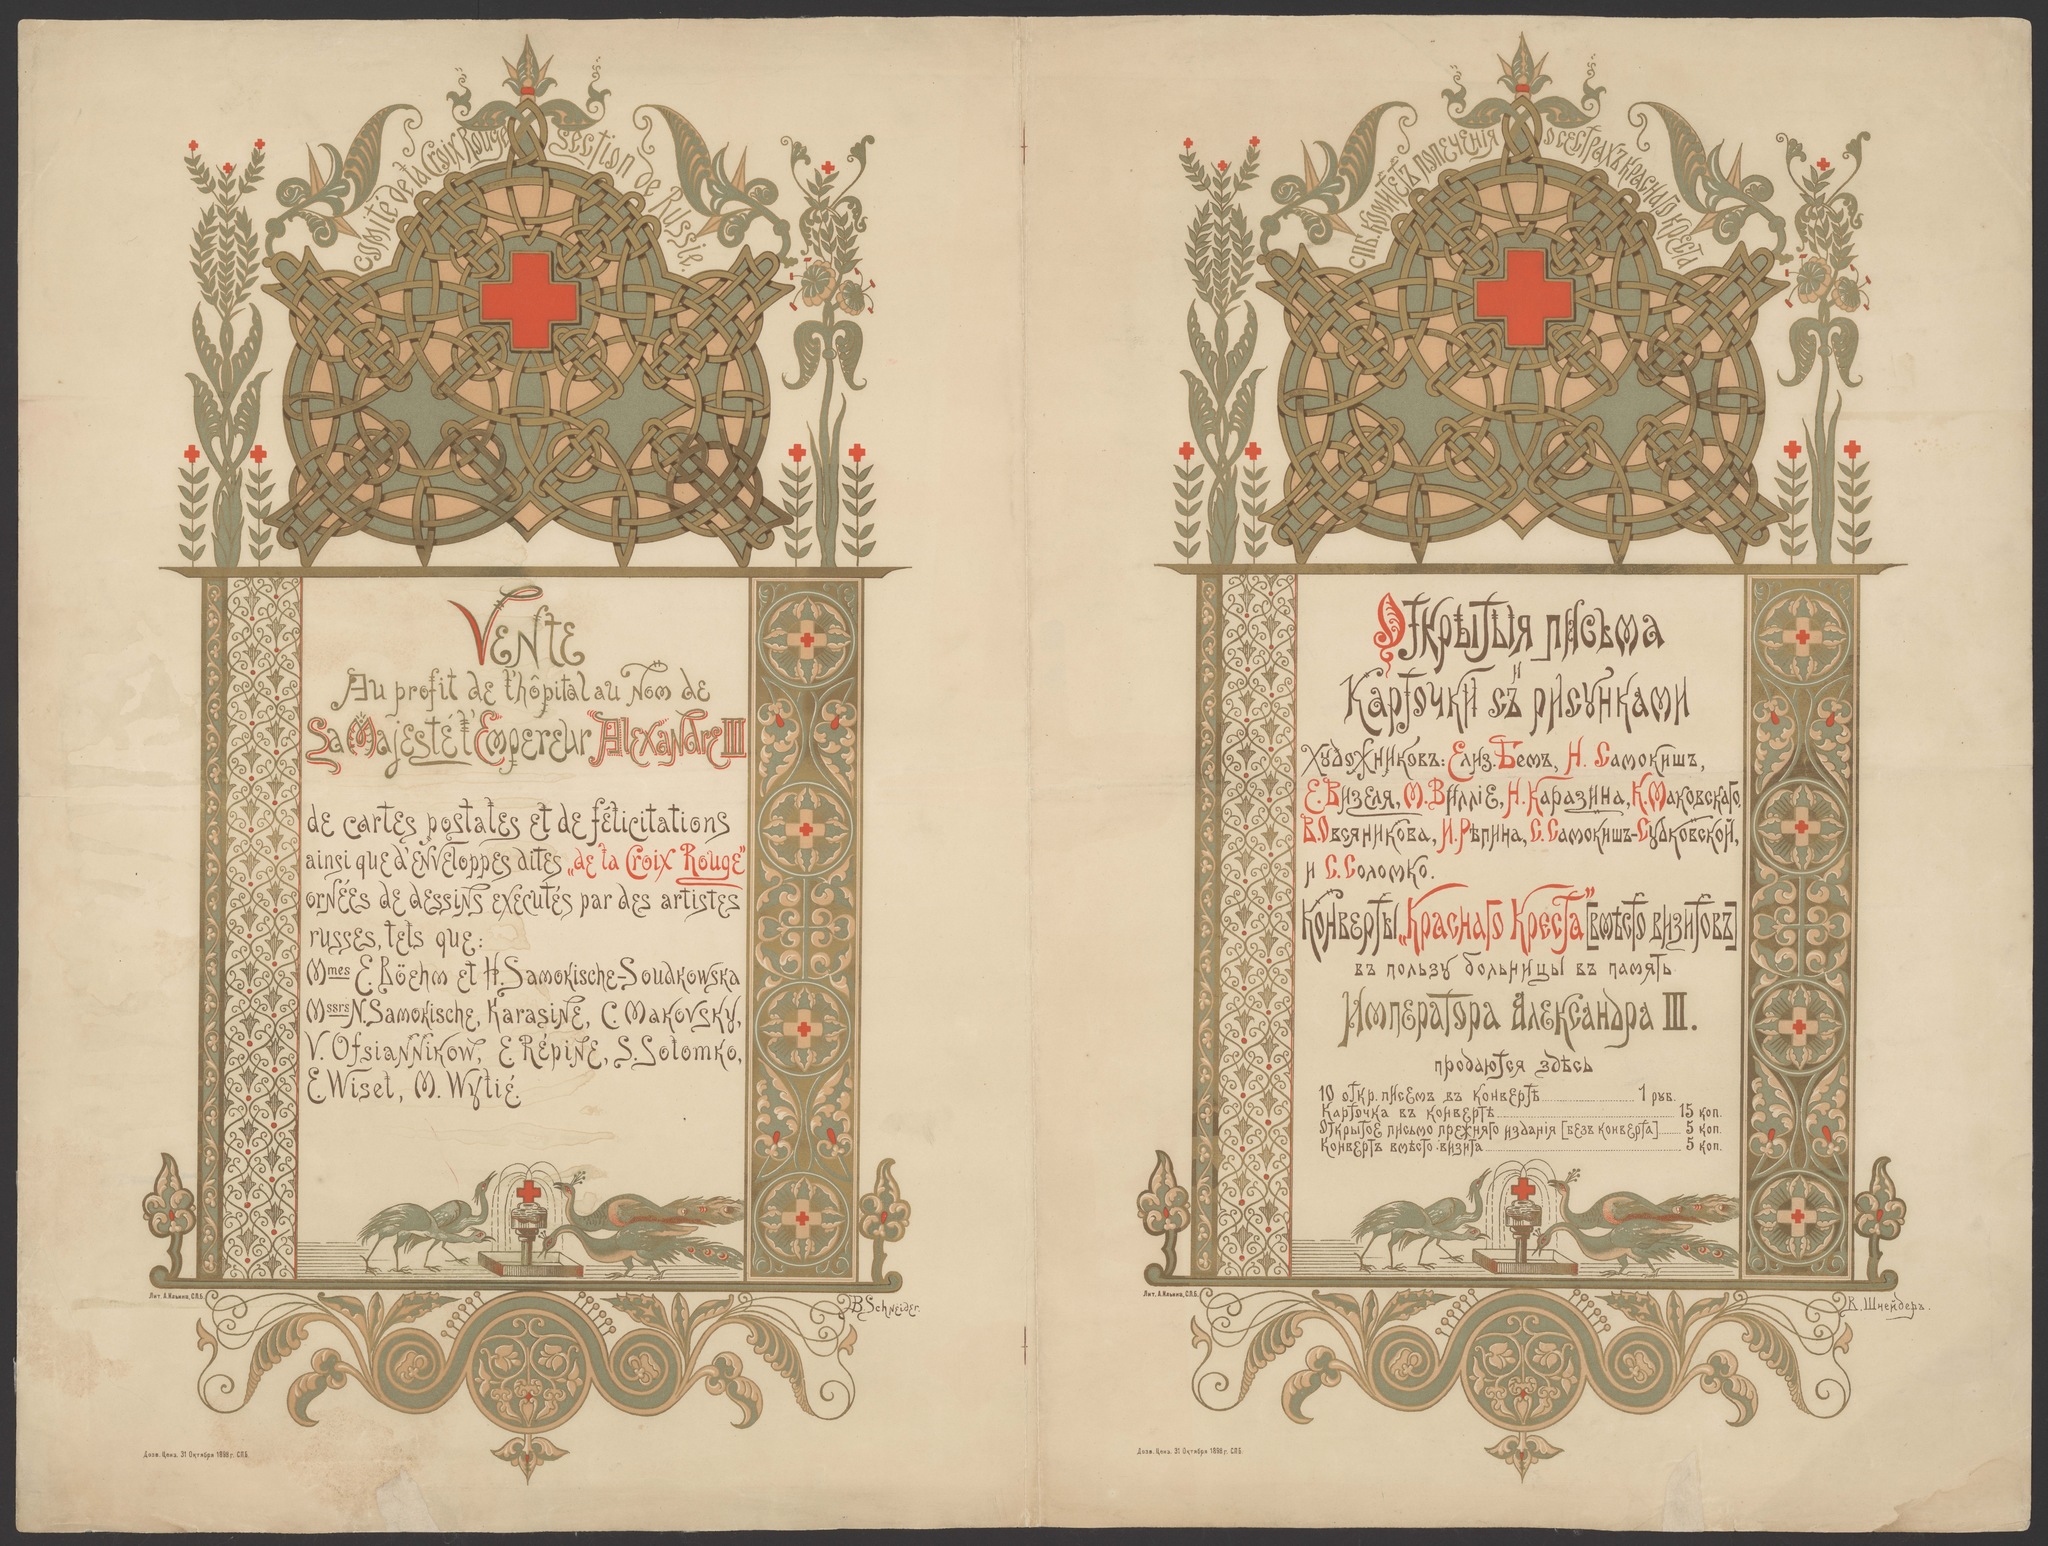 Comité de la Croix Rouge section de Russie.
Vente
Au profit de l'hôpital au Nom de
Sa Majesté l'Empereur Alexandre III
de cartes postales et de félicitations
ainsi que d'enveloppes dites „de la Croix Rouge"
ornées de dessins executés par des artistes
russes, tels que:
Mmes E. Böehm et H. Samokische-Soudkowska
Mssrs N. Samokische, Karasine, C. Makovsky,
V. Ofsiannikow, E. Répine, S. Solomko,
E. Wisel, M. Wylié.
Лит. А. Ильина, С.П.Б.
B. Schneider.
Дозв. Ценз. 31 Октября 1898 г. СПБ.
СПБ. Комитетъ попеченія о сестрахъ Краснаго Креста
Открытыя письма
и
Карточки съ рисунками
Художниковъ: Елиз. Бемъ, Н. Самокишъ,
Е. Визеля, М. Вилліе, Н. Каразина, К. Маковскаго,
В. Овсяникова, И. Рѣпина, Е. Самокишъ-Судковской,
и С. Соломко.
Конверты „Краснаго Креста" [вмѣсто визитовъ]
въ пользу больницы въ память
Императора Александра III.
продаются здѣсь
10 откр. писемъ въ конвертѣ 1 рув.
Карточка въ конвертѣ 15 коп.
Открытое письмо прежняго изданія [безъ конверта] 5 коп.
Конвертъ вмѣсто визита 5 коп.
Лит. А. Ильина, С.П.Б.
В. Шнейдеръ.
Дозв. Ценз. 31 Октября 1898 г. СПБ.